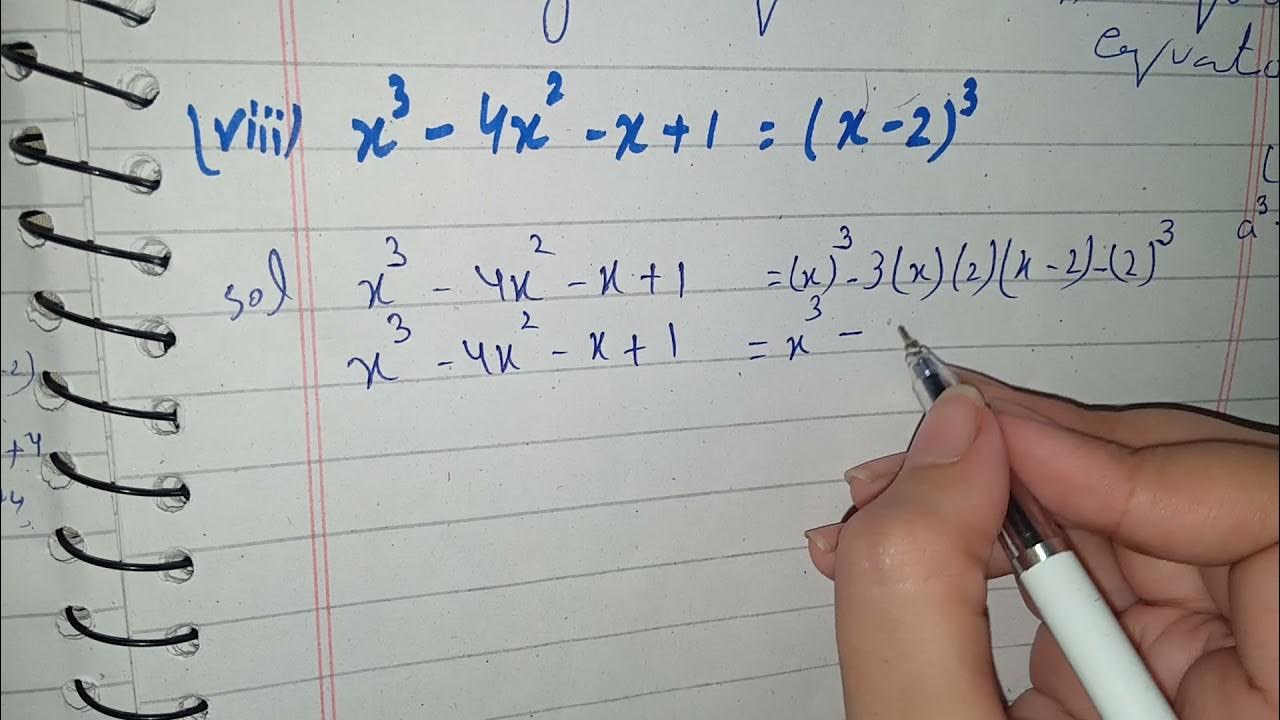 equat
(viii) x³ - 4x² - x + 1 = (x - 2)³
a³
sol x³ - 4x² - x + 1 = (x)³ - 3(x)(2)(x - 2) - (2)³
x³ - 4x² - x + 1 = x³ -
-2)
+4